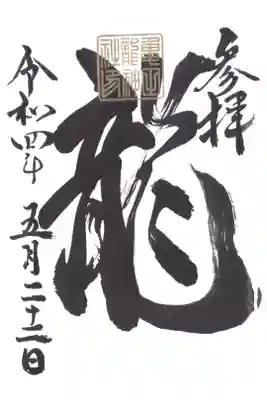 参拝
龍
令和四年 五月二十二日